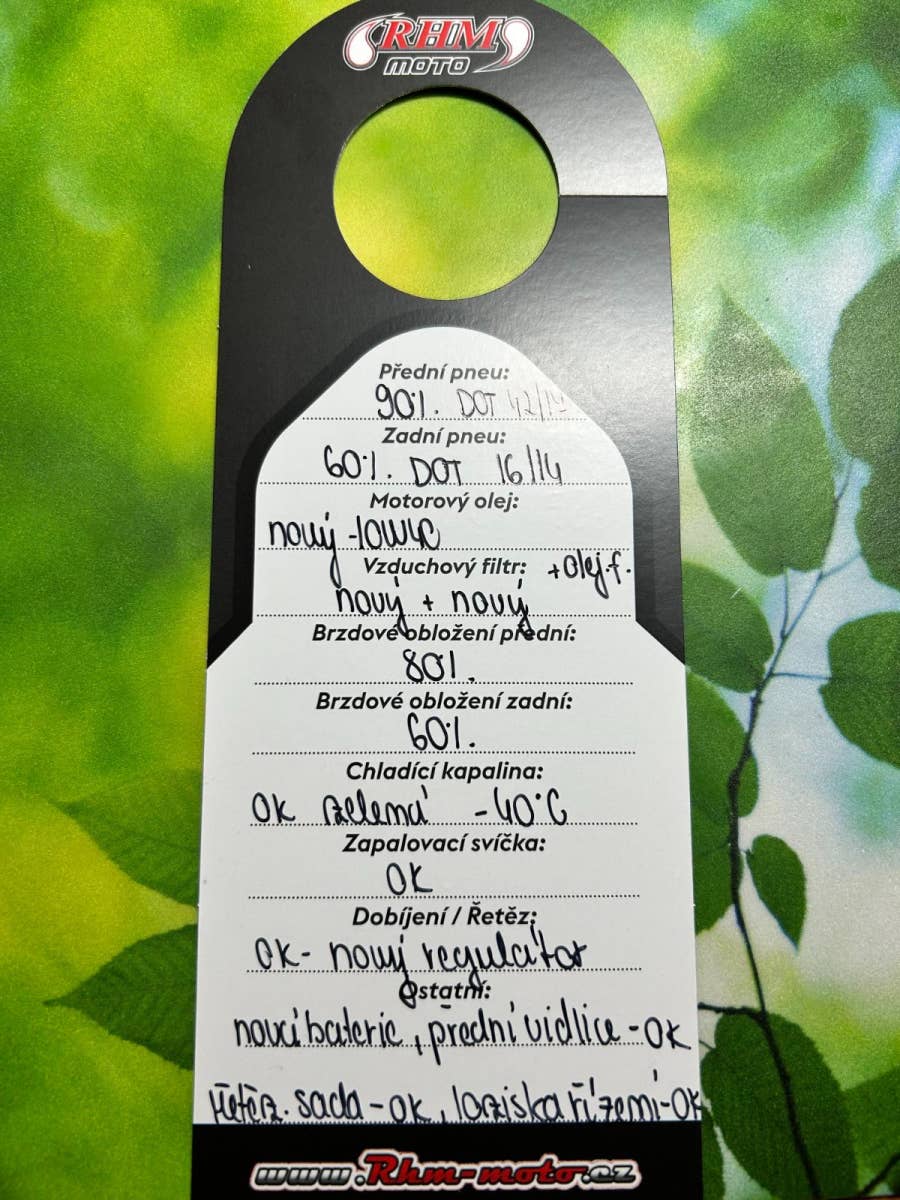 RHM
MOTO
Přední pneu:
90%. DOT
Zadní pneu:
60%. DOT 16/14
Motorový olej:
nový -10W40
Vzduchový filtr: + olej.f.
nový + nový
Brzdové obložení přední:
80%.
Brzdové obložení zadní:
60%.
Chladící kapalina:
OK zelená -40°C
Zapalovací svíčka:
OK
Dobíjení / Řetěz:
OK- nový regulátor
Ostatní:
nová baterie, přední vidlice - OK
řetěz. sada - OK, ložiska řízení - OK
www.Rhm-moto.cz